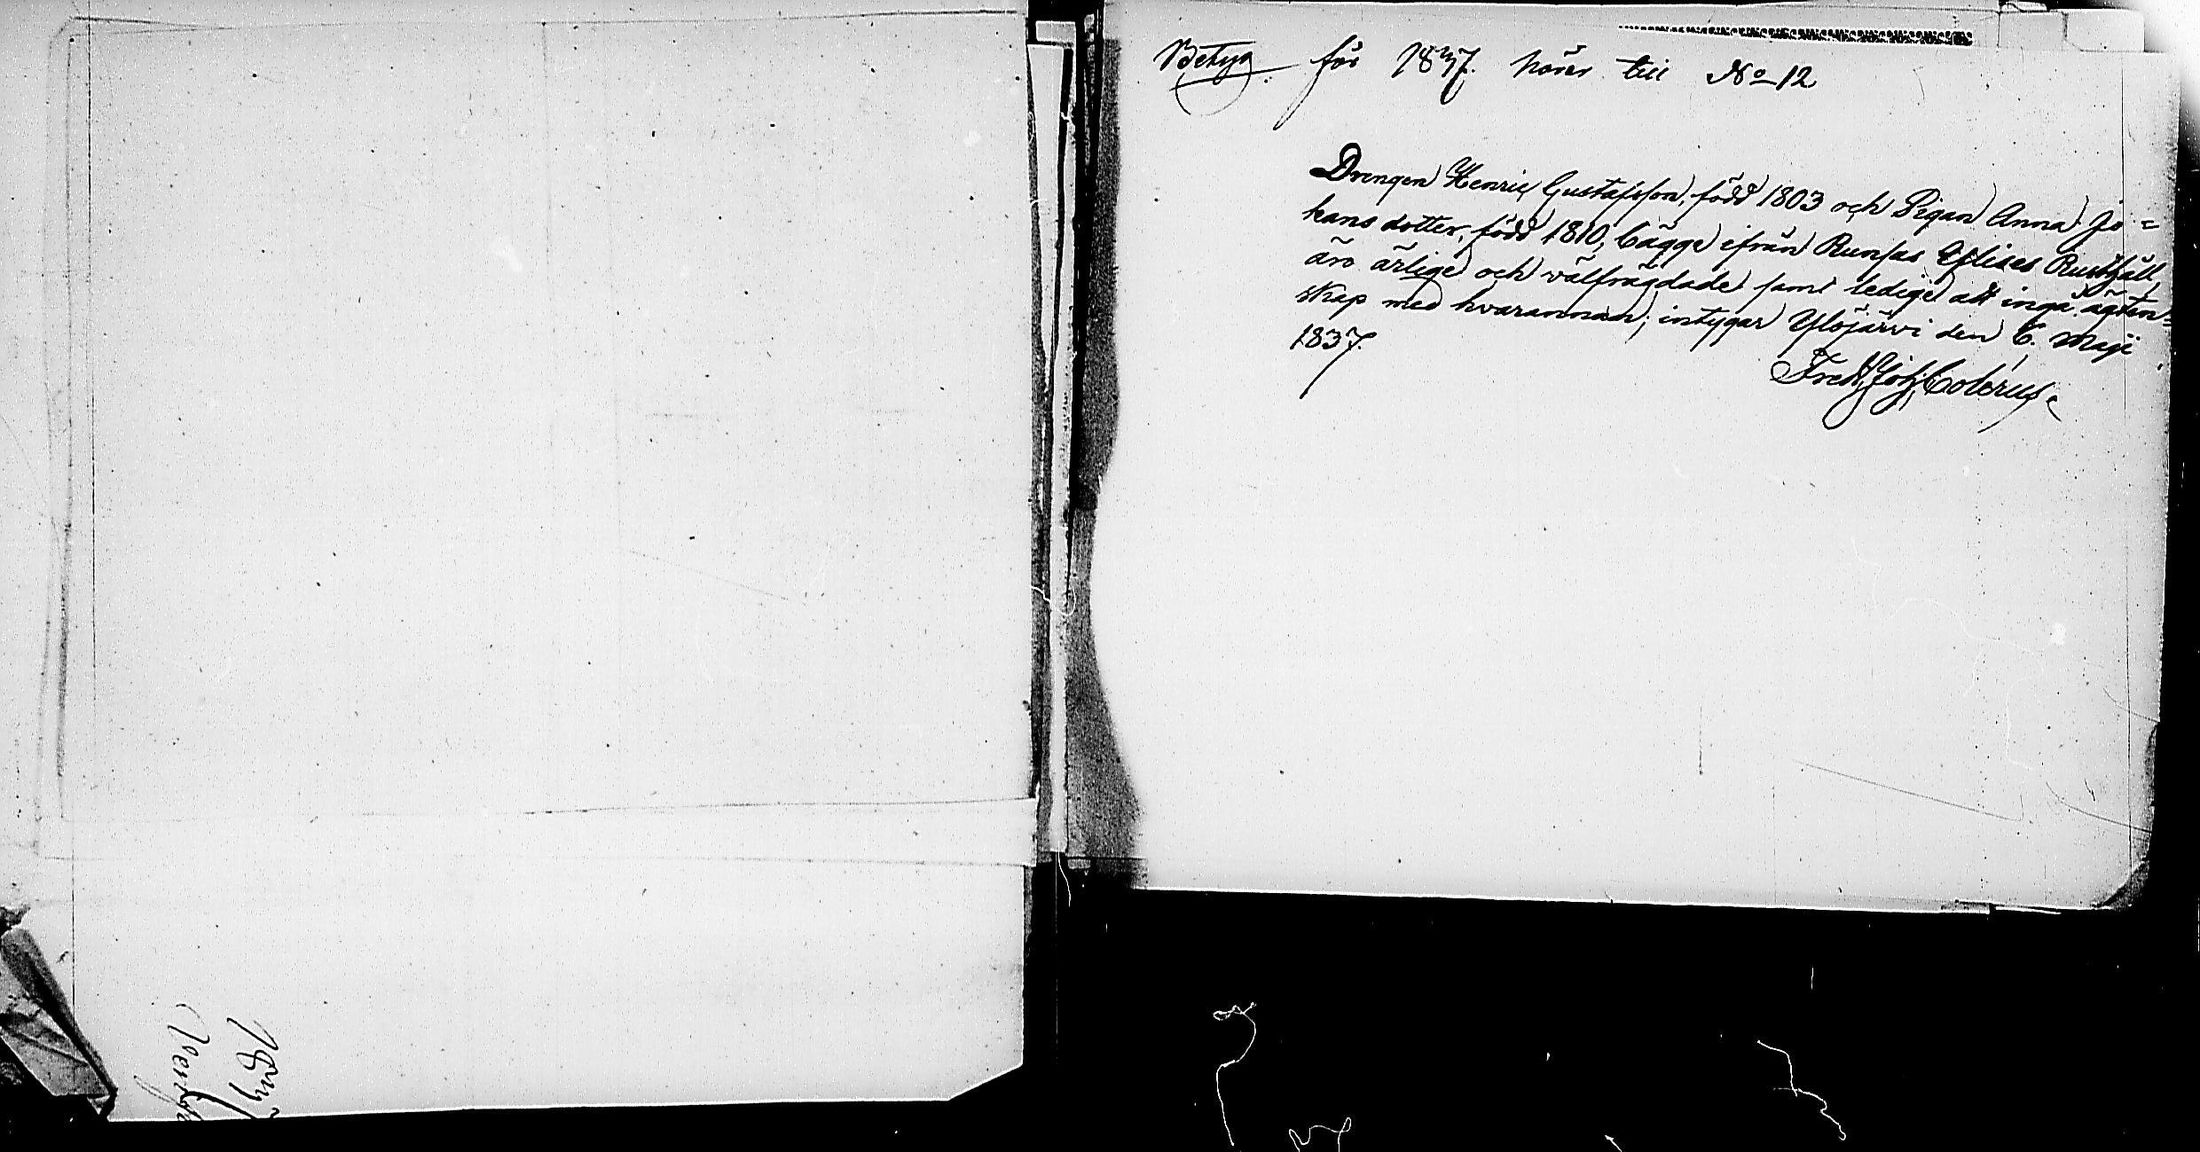 Betyg för 1837. hörer till No 12
Drengen Henric Gustafsson, född 1803 och Pigan Anna Jo=
hans dotter, född 1810, bägge ifrån Runsas Rusthåll,
äro ärlige och välfrägdade samt ledige att ingå ägten=
skap med hvarannan; intygar Ylöjärvi den 6. Maji
1837.
1837